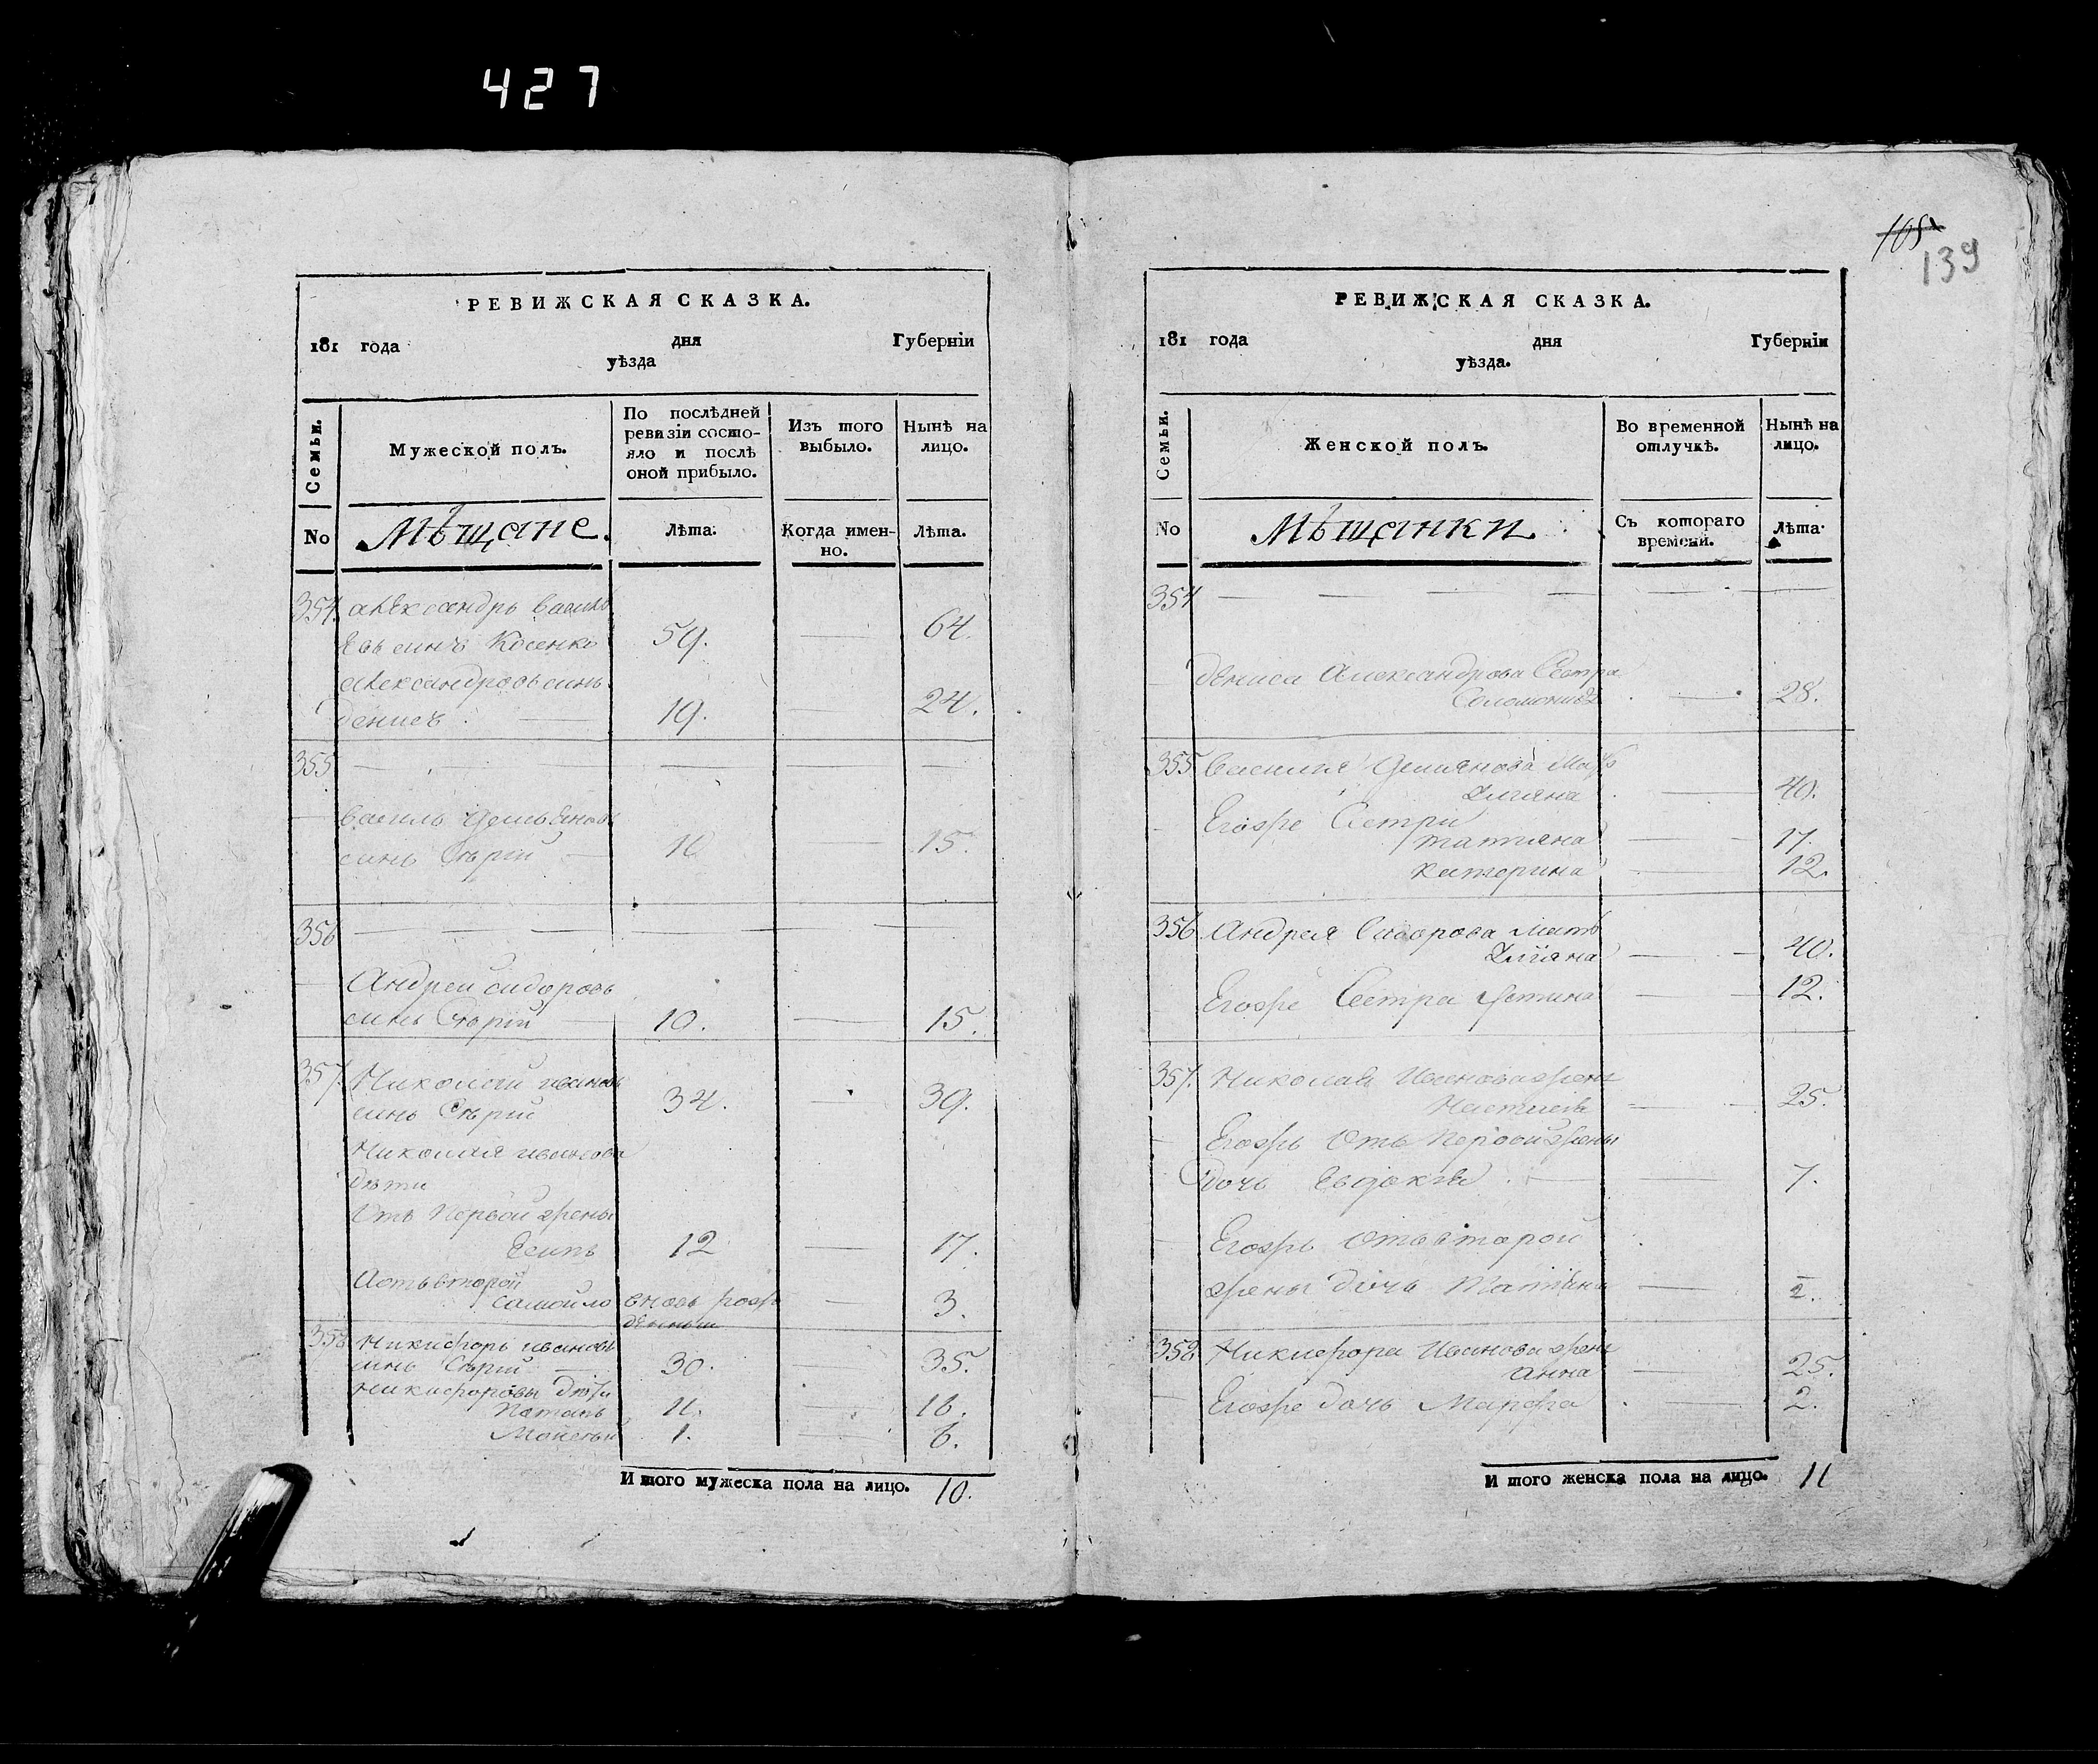 427
РЕВИЖСКАЯ СКАЗКА.
181 года дня Губернïи
уѣзда
Семьи.
Мужеской полъ.
По послѣдней
ревизïи состо-
яло и послѣ
оной прибыло.
Изъ того
выбыло.
Нынѣ на
лицо.
No
Мѣщане.
Лѣта.
Когда имен-
но.
Лѣта.
354. александръ василь
евъ синъ Косенко 59. 64.
александровъ синъ
денисъ 19. 24.
355
василь демьяновъ
синъ Сѣрïй 10 15.
356
Андрей сидоровъ
синъ Сѣрïй 10. 15.
357. Николай ивановъ
синъ Сѣрïй 34. 39.
Николая иванова
дѣти
Отъ Первой жены
Есипъ 12 17.
Аотъвторой
самойло вновь рож
денный 3.
358 Никифоръ ивановъ
синъ Сѣрïй 30. 35.
Никифоровы Дѣти
Потапъ 11. 16.
Мойсей 1. 6.
И того мужеска пола на лицо. 10.
105
139
РЕВИЖСКАЯ СКАЗКА.
181 года дня Губернïи
уѣзда.
Семьи.
Женской полъ.
Во временной
отлучкѣ.
Нынѣ на
лицо.
No
Мѣщанки.
Съ котораго
времени.
Лѣта
354
дениса Александрова Сестра
28.
355 василия Демянова Мать
Улïяна 40.
Егоже Сестри
татияна 17.
катерина 12.
356 Андрея Сидорова Мать
Улïяна 40.
Егоже Сестра Устина 12.
357. Николая Иванова жена
25.
Егожъ Отъ Первой жены
дочь Евдокïя 7.
Егожъ Отъвторой
жены дочь Татïяна 2.
358 Никифора Иванова жена
анна 25.
Егоже дочь Марфа 2.
И того женска пола на лицо. 11